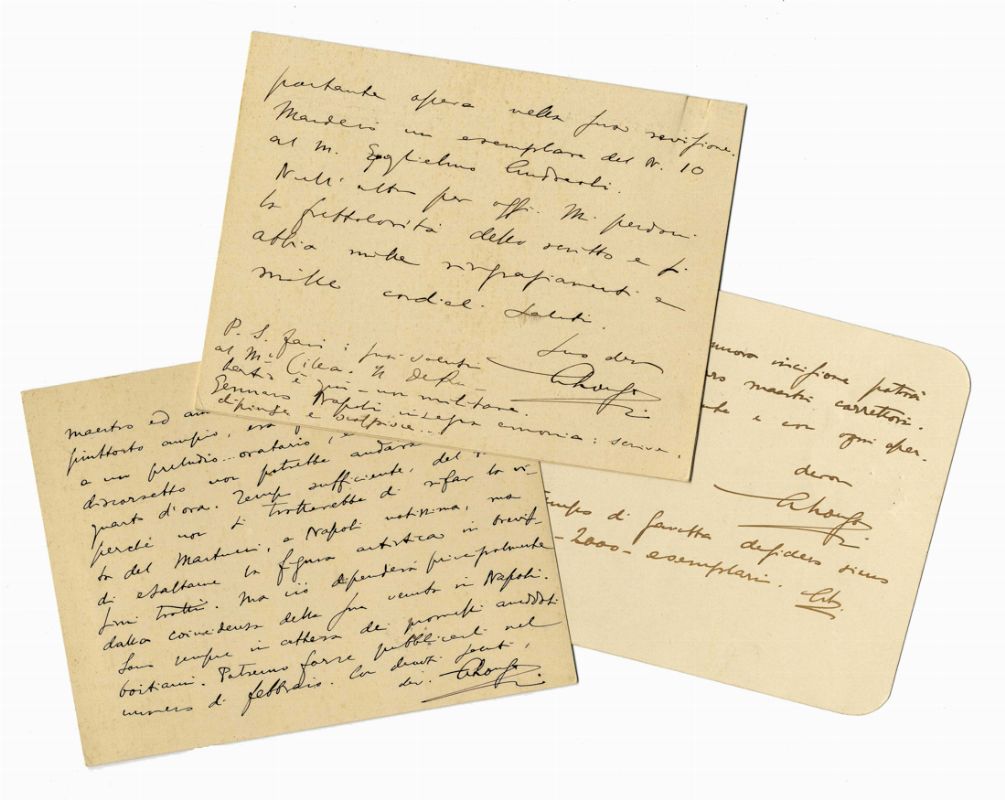 portante opera nella sua revisione.
Manderò un esemplare del N. 10
al M. Guglielmo Andreoli.
Null'altro per oggi. Mi perdoni
la frettolosità dello scritto e si
abbia mille ringraziamenti e
mille cordiali saluti.
Suo dev
P. S. Farò i suoi saluti
al M. Cilea. Il De Ru-
bertis è qui - un militare.
Gennaro Napoli insegna armonia: scrive,
dipinge e scolpisce...
maestro ed am
piuttosto ampio, era
a un preludio... oratorio, e
discorsetto non potrebbe andare
quarto d'ora. Tempo sufficiente, del
perchè non si tratterebbe di rifar la vi-
ta del Martucci, a Napoli notissima, ma
di esaltarne la figura artistica in brevis-
simi tratti. Ma ciò dipenderà principalmente
dalla coincidenza della sua venuta in Napoli.
Sono sempre in attesa dei promessi aneddoti
boitiani. Potremo forse pubblicarli nel
numero di febbraio. Con devoti saluti,
dev.
nuova incisione potrà
maestri carrettori.
e con ogni osser-
devoto
di Gavotta desidero siano
- 2000 - esemplari.